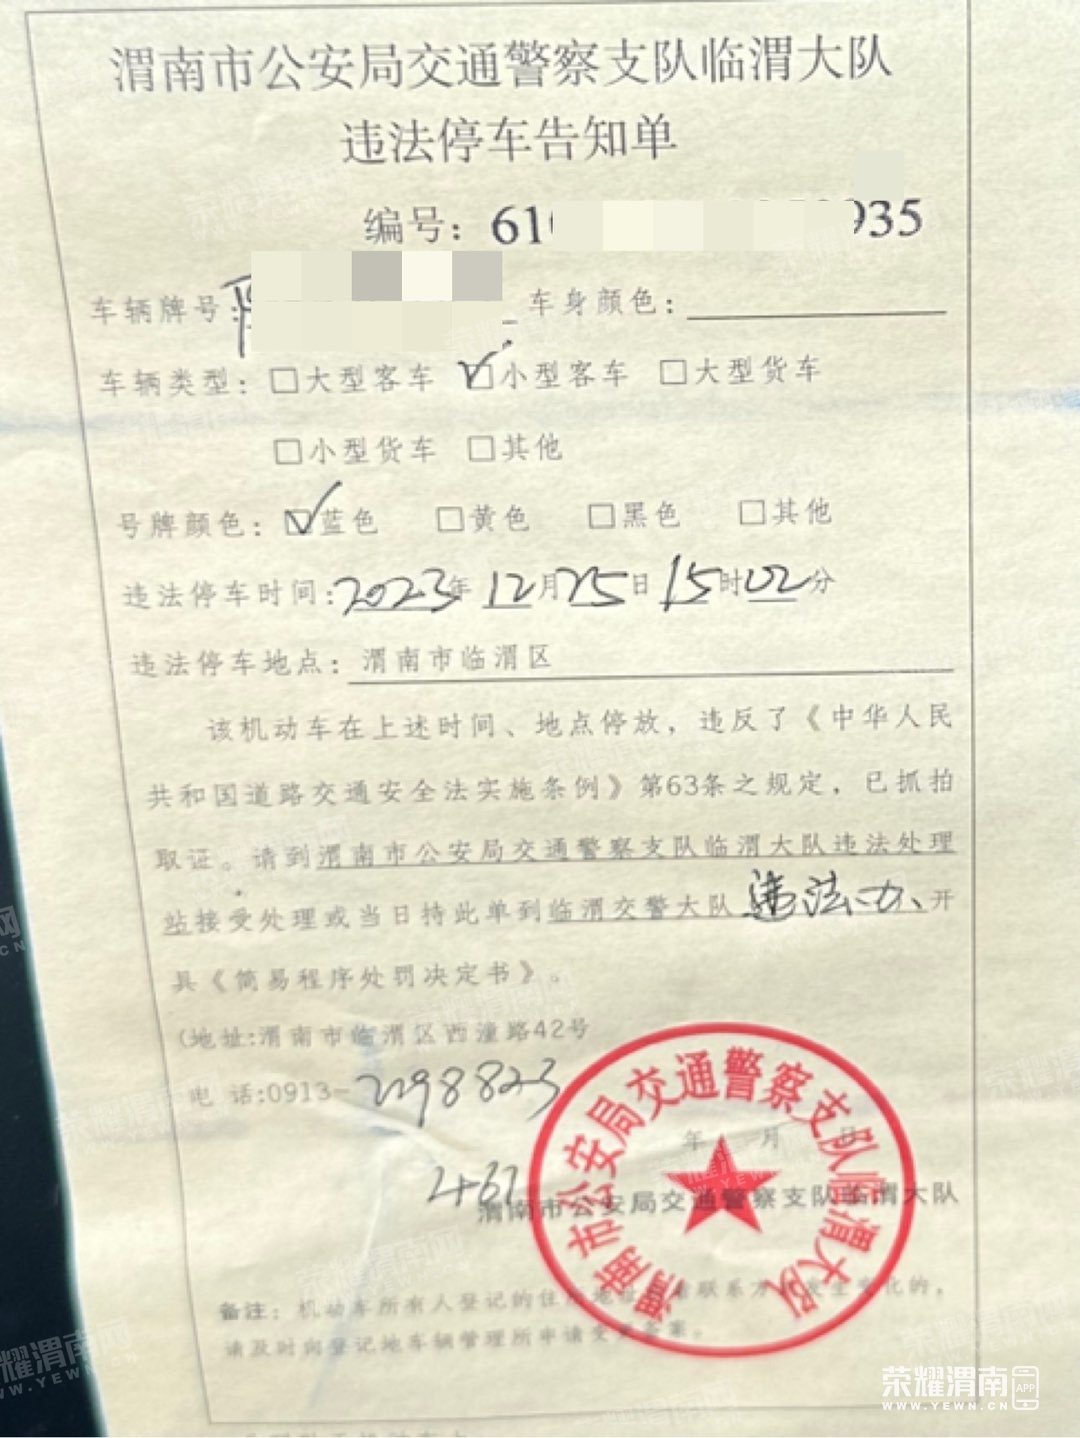 渭南市公安局交通警察支队临渭大队
违法停车告知单
编号：61 935
车辆牌号： 车身颜色：
车辆类型：□大型客车 ☑小型客车 □大型货车
□小型货车 □其他
号牌颜色：☑蓝色 □黄色 □黑色 □其他
违法停车时间：2023年12月25日15时02分
违法停车地点：渭南市临渭区
该机动车在上述时间、地点停放，违反了《中华人民
共和国道路交通安全法实施条例》第63条之规定，已抓拍
取证。请到渭南市公安局交通警察支队临渭大队违法处理
站接受处理或当日持此单到临渭交警大队违法办开
具《简易程序处罚决定书》。
(地址:渭南市临渭区西潼路42号
电 话:0913-2198823
年 月 日
461
渭南市公安局交通警察支队临渭大队
渭南市公安局交通警察支队临渭大队
备注：机动车所有人登记的住所地址或者联系方式发生变化的，
请及时向登记地车辆管理所申请变更备案。
荣耀渭南 APP
WWW.YEWN.CN